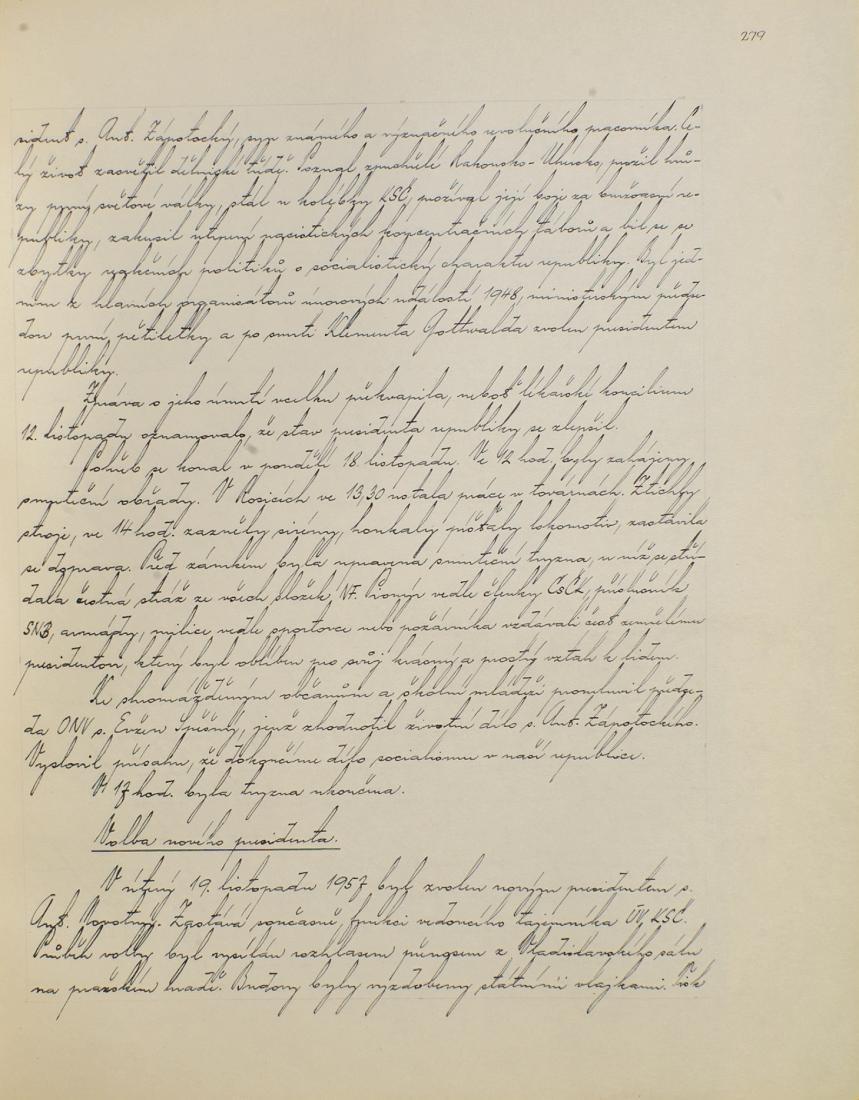 279
sident s. Ant. Zápotocký, syn známého a význačného revolučního pracovníka. Ce-
lý život zasvětil dělnické třídě. Poznal zpuchřelé Rakousko-Uhersko, prožil hrů-
zy první světové války, stál u kolébky KSČ, prožíval její boje za buržoasní re-
publiky, zakusil utrpení nacistických koncentračních táborů a bil se se
zbytky politiků o socialistický charakter republiky. Byl jed-
ním z hlavních organisátorů únorových událostí 1948, ministerským předse-
dou první pětiletky a po smrti Klementa Gottwalda zvolen presidentem
republiky.
Zpráva o jeho úmrtí vcelku překvapila, neboť lékařské konsilium
12. listopadu oznamovalo, že stav presidenta republiky se zlepšil.
Pohřeb se konal v pondělí 18. listopadu. Ve 12 hod. byly zahájeny
smuteční obřady. V Rosicích ve 13,30 ustala práce v továrnách. Ztichly
stroje, ve 14 hod. zazněly sirény, houkaly píšťaly lokomotiv, zastavila
se doprava. Před zámkem byla upravena smuteční tryzna, u níž se stří-
dala čestná stráž ze všech složek NF. Pionýr vedle členky ČsČK, příslušník
SNB, armády, milice vedle sportovce nebo požárníka vzdávali čest zemřelému
presidentovi, který byl oblíben pro svůj krásný a prostý vztah k lidem.
Ke shromážděným občanům a školní mládeži promluvil předse-
da ONV s. Evžen Špěšný, jenž zhodnotil životní dílo s. Ant. Zápotockého.
Vyslovil přísahu, že dokončíme dílo socialismu v naší republice.
V 17 hod. byla tryzna ukončena.
Volba nového presidenta.
V úterý 19. listopadu 1957 byl zvolen novým presidentem s.
Ant. Novotný. Zastává současně funkci vedoucího tajemníka ÚV KSČ.
Průběh volby byl vysílán rozhlasem přenosem z Vladislavského sálu
na pražském hradě. Budovy byly vyzdobeny státními vlajkami. Tisk